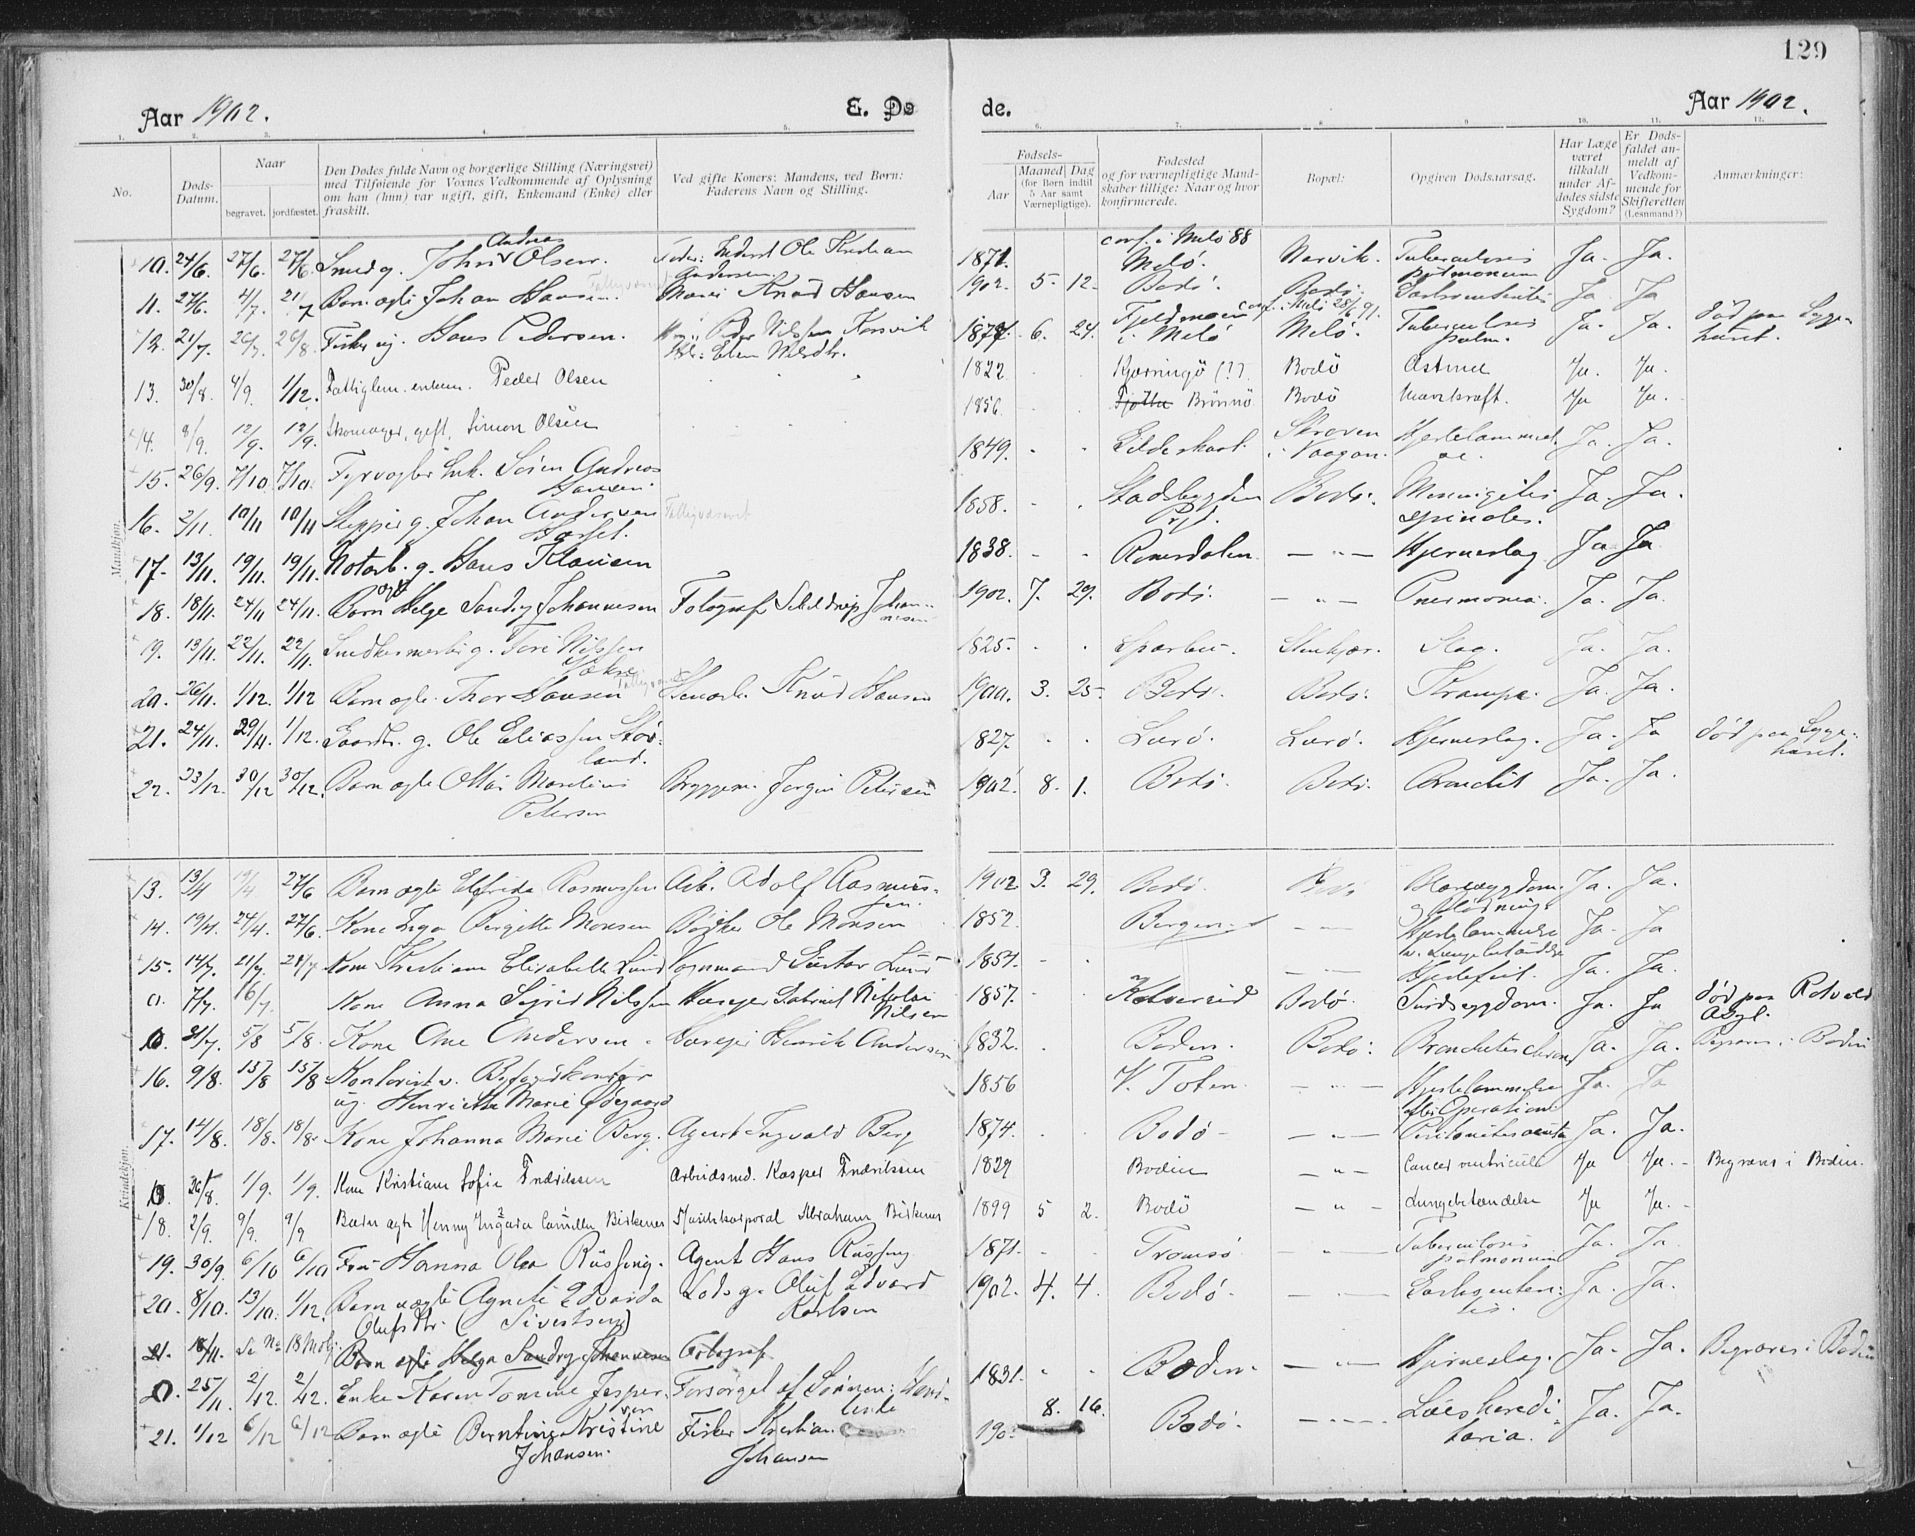 129
Aar 1902. E. Dø de. Aar 1902.
1. 2. 3. 4. 5. 6. 7. 8. 9. 10. 11. 12.
No. Døds-Datum. Naar begravet. jordfæstet. Den Dødes fulde Navn og borgerlige Stilling (Næringsvei) med Tilføiende for Voxnes Vedkommende af Oplysning om han (hun) var ugift, gift, Enkemand (Enke) eller fraskilt. Ved gifte Koner: Mandens, ved Børn: Faderens Navn og Stilling. Fødsels- Aar Maaned Dag (for Børn indtil 5 Aar samt Værnepligtige). Fødested og for værnepligtige Mandskaber tillige: Naar og hvor konfirmerede. Bopæl: Opgiven Dødsaarsag. Har Læge været tilkaldt under Afdødes sidste Sygdom? Er Dødsfaldet anmeldt af Vedkommende for Skifteretten (Lensmand?) Anmærkninger:
Mandkjøn.
10. 24/6. 27/6. 27/6. Smed g. John Andreas Olsen. Ole Kristian Andersen 1871. conf. i Melö 88 Melö. Narvik. Tuberculosis pulmonum Ja. Ja.
11. 27/6. 4/7. 21/7 Barn ægte Johan Hansen. Knud Hansen 1902. 5. 12. Bodö. Bodö. Ja Ja
12. 21/7. 26/7. 26/8. Fisker ug. Hans Pedersen. Peder Nilssen Korsvik 1877. 6. 24. i Melö Melö. Tuberculosis pulm. Ja. Ja. død paa Sygehuset.
13. 30/8. 4/9. 1/12. Fattiglem. enkem. Peder Olsen 1822 Kjærringö (?). Bodö Astma Ja. Ja.
14. 8/9. 12/9. 12/9. Skomager, gift, Simon Olsen 1856. Fjøtta Brönnö Bodö Mavekræft. Ja Ja.
15. 26/9. 7/10. 7/10. Fyrvogter Enk. Sören Andreas Hansen. 1849. Gildeskaal. Skroven i Vaagan. Hjertelammelse. Ja. Ja.
16. 2/11. 10/11 10/11 Skipper g. Johan Andersen 1858. Stadsbygden Prgl. Bodö. Meningitis spinalis. Ja. Ja.
17. 13/11. 19/11. 19/11. Notarb. g. Hans Klausen 1838. Ranesdalen — " — Hjerneslag Ja Ja
18. 18/11. 24/11 24/11. Barn ægte Helge Sandry Johannesen Fotograf Scheldrup Johannesen 1902. 7. 29. Bodö. — " — Pneumonia. Ja. Ja.
19. 13/11. 22/11. 22/11. Snedkermester g. Tore Nilssen 1825. Sparbu. Stenkjær. Slag. Ja. Ja.
20. 26/11. 1/12. 1/12 Barn ægte. Thor Hansen Knud Hansen 1900. 3. 25. Bodö. Bodö. Krampe. Ja. Ja.
21. 24/11. 29/11. 1/12. Gaardbr. g. Ole Eliassen Storland. 1827. Lurö. Lurö. Hjerneslag. Ja. Ja død paa Sygehuset.
22. 23/12. 30/12 30/12. Barn ægte Ottar Marelius Petersen Bryggem. Jørgen Petersen 1902. 8. 1. Bodö. Bodö. Bronchit Ja. Ja.
Kvindekjøn.
13. 13/4 19/4 27/6 Barn ægte Elfrida Rasmussen Arb. Adolf Rasmussen. 1902 3. 29. Bodö. Bodö Blæresygdom. Ja. Ja.
14. 19/4. 24/4. 27/6. Kone Inga Birgitte Monsen Bödker Ole Monsen 1852. Bergen — " — Hjertelammelse Ja. Ja
15. 14/7. 21/7. 21/7 Kone Kristiane Elisabeth Lund Vognmand Gustav Lund 1854. — " — Hjertefeil. Ja. Ja.
0. 7/7. 16/7. Kone Anna Sigrid Nilssen Gabriel Nikolai Nilsen 1857. Kolvereid Bodö. Sindssygdom. Ja. Ja død paa Rotvold Asyl.
0. 31/7. 5/8 5/8. Kone Ane Andersen. Henrik Andersen 1832. Bodin. Bodö. Bronchitis chron. Ja. Ja. Begraves i Bodin
16. 9/8. 15/8 15/8 Kontorist v. Byfogdkontor ug. Henriette Marie Ødegaard 1856 V. Toten. — " — Hjertelammelse efter Operation Ja. Ja
17. 14/8. 18/8. 18/8. Kone Johanna Marie Berg. Agent Ingvald Berg 1874. Bodö — " — Peritonitis acuta Ja. Ja.
0. 26/8. 1/9. 1/9. Kone Kristiane Sofie Fredriksen Arbeidsmd. Kasper Fredriksen 1829 Bodin — " — Cancer ventriculi Ja Ja. Begraves i Bodin.
18. 2/9. 9/9. 9/9 Barn ægte Henny Ingara Camilla Birkenes Abraham Birkenes 1899 5 2. Bodö — " — Lungebetændelse Ja Ja.
19. 30/9. 6/10 6/10 Fru Hanna Olea Rüssing. Agent Hans Rüssing 1871. Tromsö. — " — Tuberculosis pulmonum Ja. Ja.
20. 8/10. 13/10. 1/12. Barn uægte Agnete Edvarda Olufsdtr. (Sivertsen) Lods g. Oluf Edvard Karlsen 1902. 4. 4. Bodö. — " — Ja. Ja.
21. 18/11. Se No 18 Mskj. Barn ægte Helga Sandry Johannesen Fotograf
0. 25/11. 2/12. 2/12. Enke Karen Tomine Jespersen Forsørget af Sønnen: 1831. Bodin. — " — Hjerneslag. Ja. Ja. Begraves i Bodin
21. 1/12 6/12 6/12 Barn ægte Berntine Kristine Johansen. Fisker Kristian Johansen 190 8. 16. Bodö. — " — Lues hereditaria. Ja. Ja.